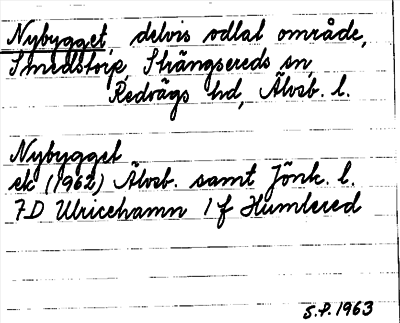 Nybygget, delvis odlat område,
Smedstorp, Strängsereds sn,
Redvägs hd, Älvsb. l.
Nybygget
ek (1962) Älvsb. samt Jönk. l.
7D Ulricehamn 1 f Humlered
S.P. 1963